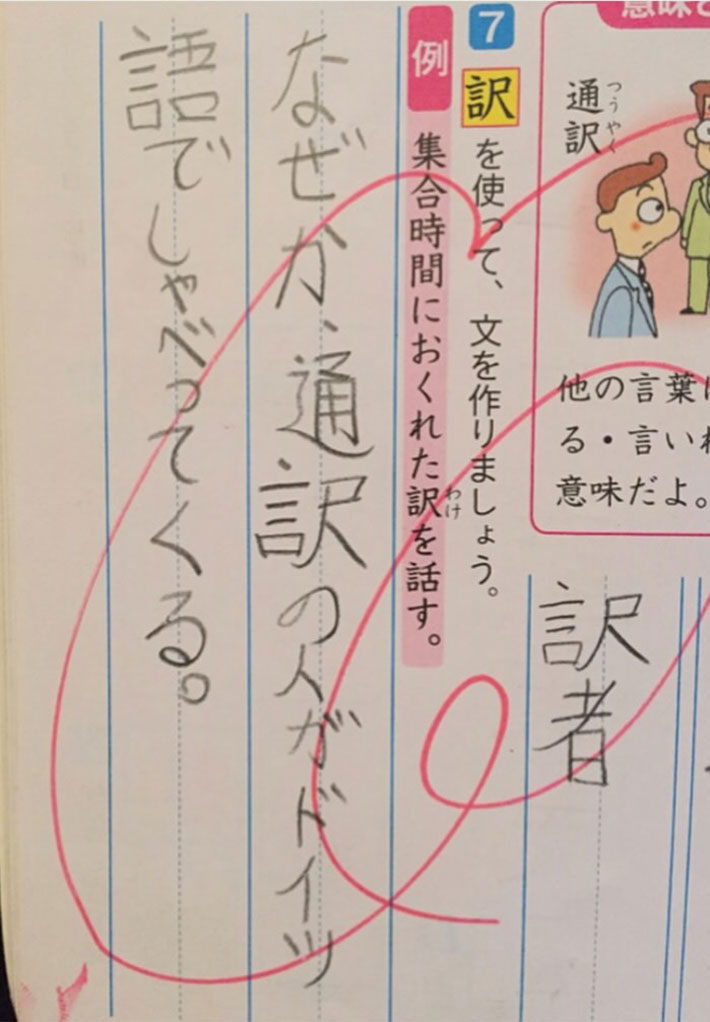 意味
通訳
つうやく
他の言葉
る・言い
意味だよ。
訳者
7 訳を使って、文を作りましょう。
例 集合時間におくれた訳を話す。
わけ
なぜか、通訳の人がドイツ
語でしゃべってくる。